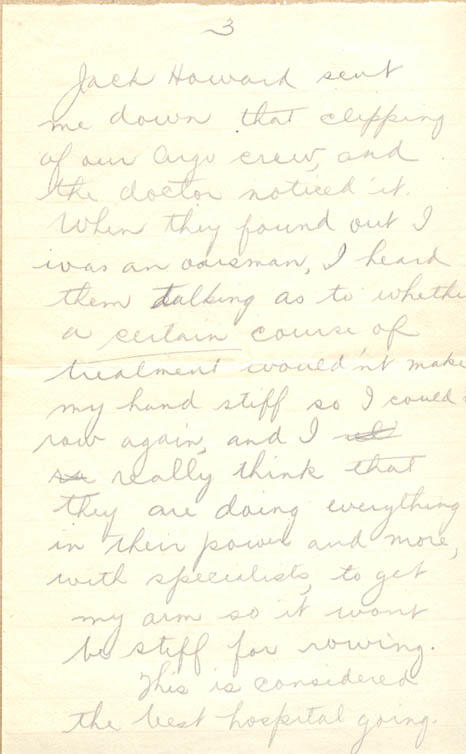 3
Jack Howard sent
me down that clipping
of our Argo crew, and
the doctor noticed it.
When they found out I
was an oarsman, I heard
them talking as to whethe
a certain course of
treatment would'nt make
my hand stiff so I could
row again, and I
really think that
they are doing everything
in their power and more,
with specialists, to get
my arm so it wont
be stiff for rowing.
This is considered
the best hospital going.